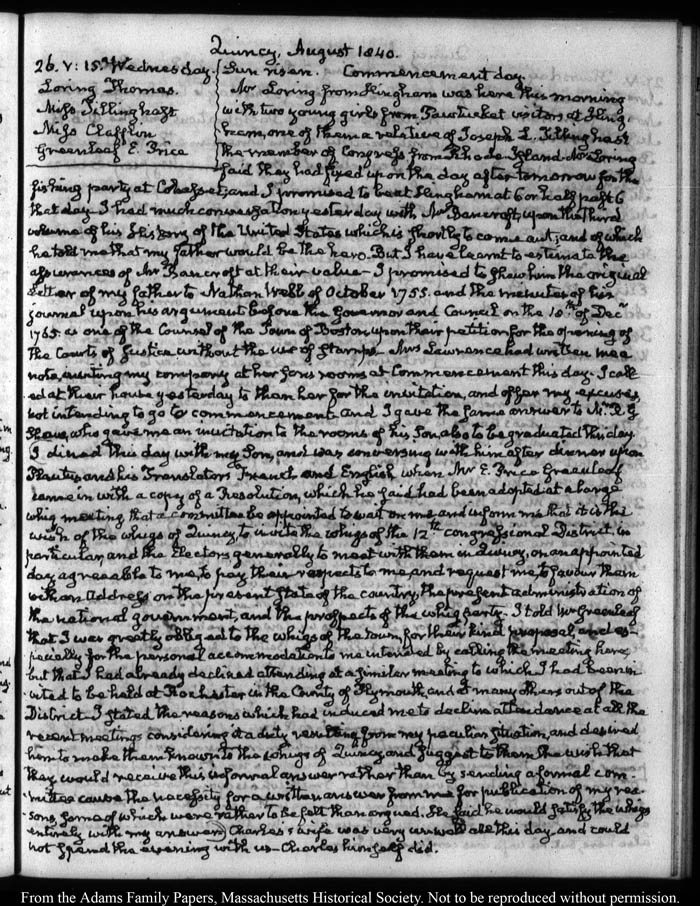 Quincy, August 1840.
26. V: 15. Wednesday. Sun risen. Commencement day.
Loring Thomas.
Miss Tillinghast
Miss Clafflin
Greenleaf E. Price
Mr Loring from Hingham was here this morning
with two young girls from Pawtucket visitors at Hing-
ham, one of them a relative of Joseph L. Tillinghast
the member of Congress from Rhode Island. Mr Loring
said they had fixed upon the day after tomorrow for the
fishing party at Cohasset; and I promised to be at Hingham at 6 or half past 6
that day. I had much conversation yesterday with Mr Bancroft, upon the third
volume of his History of the United States which is shortly to come out; and of which
he told me that my father would be the hero. But I have learnt to estimate the
assurances of Mr Bancroft at their value – I promised to shew him the original
Letter of my father to Nathan Webb of October 1755. and the minutes of his
journal upon his argument before the Governor and Council on the 20th of Decr
1765. as one of the Counsel of the Town of Boston upon their petition for the opening of
the Courts of Justice without the use of Stamps – Mrs Lawrence had written me a
note, inviting my company at her sons rooms at Commencement this day. I call-
ed at their house yesterday to thank her for the invitation, and offer my excuses,
not intending to go to commencement – and I gave the same answer to Mr R. G
Shaw, who gave me an invitation to the rooms of his Son also to be graduated this day
I dined this day with my Son, and was conversing with him after dinner upon
Plautus and his Translators French and English when Mr E. Price Greenleaf
came in with a copy of a Resolution, which he said had been adopted at a large
whig meeting that a committee be appointed to wait on me and inform me that it is the
wish of the whigs of Quincy to invite the whigs of the 12th congressional District in
particular, and the Electors generally to meet with them in Quincy, on an appointed
day, agreeable to me, to pay their respects to me and request me to favour them
with an Address on the present state of the country, the present administration of
the national government, and the prospects of the whig party. I told Mr Greenleaf
that I was greatly obliged to the whigs of the Town, for their kind proposal, and es-
pecially for the personal accommodation to me intended by calling the meeting here
but that I had already declined attending at a similar meeting to which I had been in-
vited to be held at Rochester in the County of Plymouth, and at many others out of the
District. I stated the reasons which had induced me to decline attendance at all the
recent meetings considering it a duty resulting from my peculiar situation, and desired
him to make them known to the whigs of Quincy and suggest to them the wish that
they would receive this informal answer rather than by sending a formal com-
mittee cause the necessity for a written answer from me for publication of my rea-
sons, some of which were rather to be felt than argued. He said he would satisfy the whigs
entirely with my answer. Charles's wife was very unwell all this day, and could
not spend the evening with us – Charles himself did.
From the Adams Family Papers, Massachusetts Historical Society. Not to be reproduced without permission.